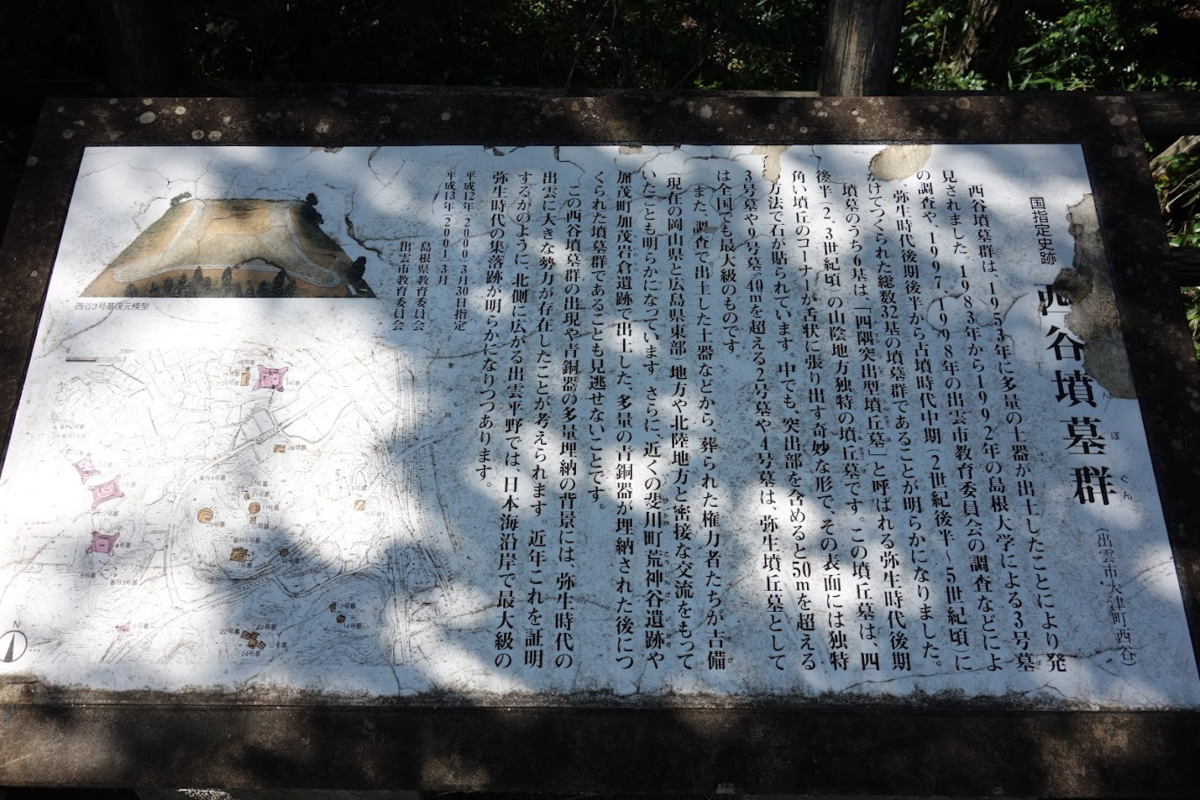 国指定史跡
西谷墳墓群
ぼ ぐん
（出雲市大津町西谷）
西谷墳墓群は、1953年に多量の土器が出土したことにより発
見されました。1983年から1992年の島根大学による3号墓
の調査や、1997、1998年の出雲市教育委員会の調査などによ
弥生時代後期後半から古墳時代中期（2世紀後半～5世紀頃）に
かけてつくられた総数32基の墳墓群であることが明らかになりました。
墳墓のうち6基は「四隅突出型墳丘墓」と呼ばれる弥生時代後期
後半（2-3世紀頃）の山陰地方独特の墳丘墓です。この墳丘墓は、四
角い墳丘のコーナーが舌状に張り出す奇妙な形で、その表面には独特
な方法で石が貼られています。中でも、突出部を含めると50mを超える
3号墓や9号墓、40mを超える2号墓や4号墓は、弥生墳丘墓として
は全国でも最大級のものです。
また、調査で出土した土器などから、葬られた権力者たちが吉備
（現在の岡山県と広島県東部）地方や北陸地方と密接な交流をもって
いたことも明らかになっています。さらに、近くの斐川町荒神谷遺跡や
加茂町加茂岩倉遺跡で出土した、多量の青銅器が埋納された後につ
くられた墳墓群であることも見逃せないことです。
この西谷墳墓群の出現や青銅器の多量埋納の背景には、弥生時代の
出雲に大きな勢力が存在したことが考えられます。近年これを証明
するかのように、北側に広がる出雲平野では、日本海沿岸で最大級の
弥生時代の集落跡が明らかになりつつあります。
平成12年（2000）3月30日指定
平成13年（2001）3月
島根県教育委員会
出雲市教育委員会
西谷3号墓復元模型
N